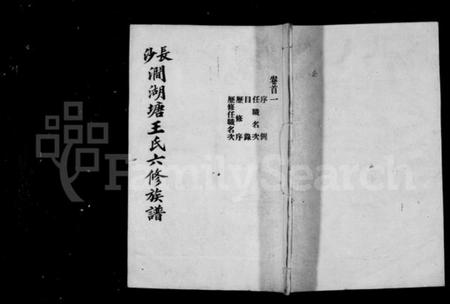 卷首一
序例
任職名次
目錄
歷修序
歷修任職名次
長沙澗湖塘王氏六修族譜
FamilySearch